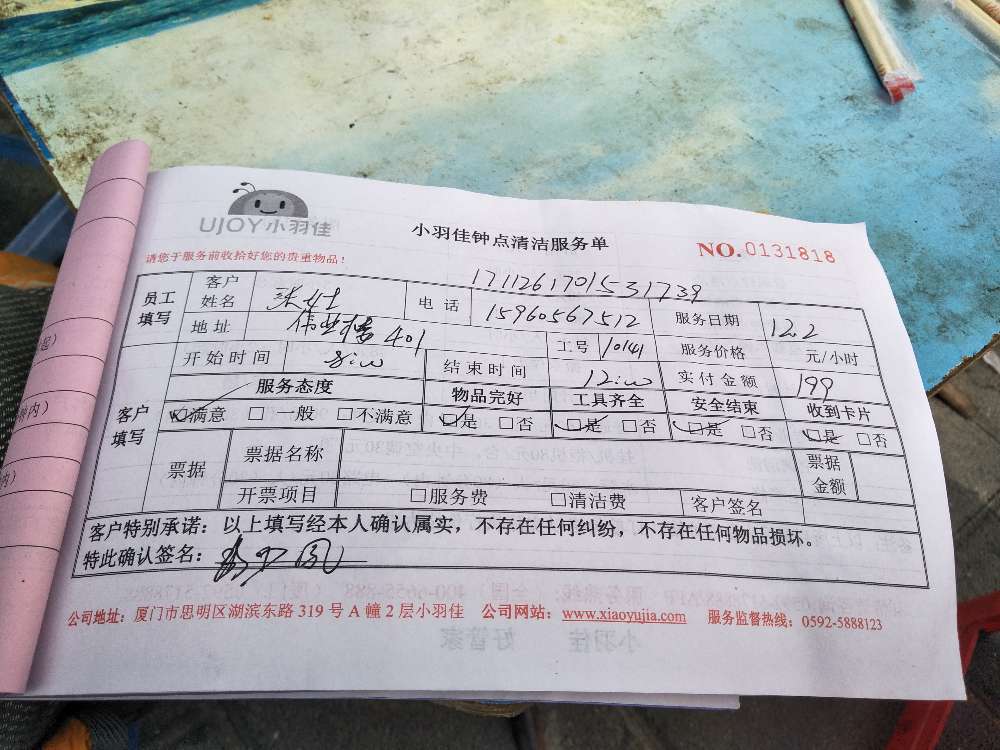 UJOY小羽佳
小羽佳钟点清洁服务单
NO.0131818
请您于服务前收拾好您的贵重物品!
1711261701531739
员工填写 客户姓名 张女士 电话 15960567512 服务日期 12.2
地址 伟业楼 401 工号 10141 服务价格 元/小时
开始时间 8:00 结束时间 12:00 实付金额 199
客户填写 服务态度 物品完好 工具齐全 安全结束 收到卡片
☑满意 □一般 □不满意 ☑是 □否 ☑是 □否 ☑是 □否 ☑是 □否
票据 票据名称 票据金额
开票项目 □服务费 □清洁费 客户签名
客户特别承诺:以上填写经本人确认属实,不存在任何纠纷,不存在任何物品损坏。
特此确认签名:
公司地址:厦门市思明区湖滨东路 319 号 A 幢 2 层小羽佳 公司网站:www.xiaoyujia.com 服务监督热线:0592-5888123